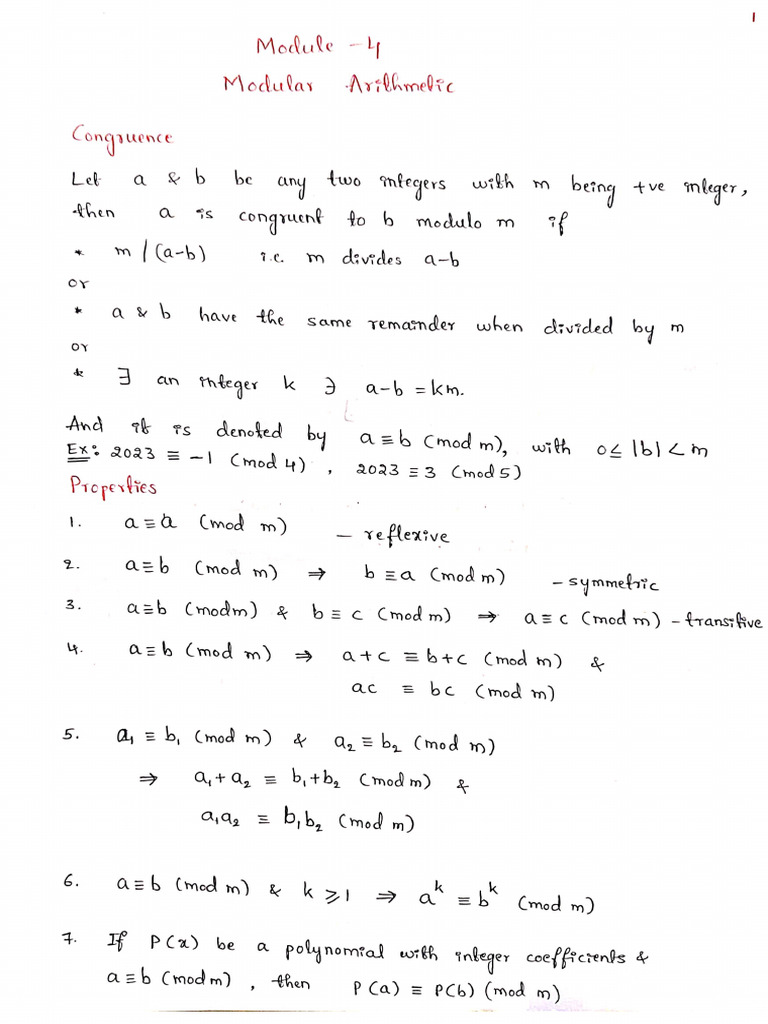 1
Module -4
Modular Arithmetic
Congruence
Let a & b be any two integers with m being +ve integer,
then a is congruent to b modulo m if
* m | (a-b) i.e. m divides a-b
or
* a & b have the same remainder when divided by m
or
* ∃ an integer k ∋ a-b = km.
And it is denoted by a ≡ b (mod m), with 0 ≤ |b| < m
Ex: 2023 ≡ -1 (mod 4) , 2023 ≡ 3 (mod 5)
Properties
1. a ≡ a (mod m) - reflexive
2. a ≡ b (mod m) ⇒ b ≡ a (mod m) - symmetric
3. a ≡ b (mod m) & b ≡ c (mod m) ⇒ a ≡ c (mod m) - transitive
4. a ≡ b (mod m) ⇒ a + c ≡ b + c (mod m) &
ac ≡ bc (mod m)
5. a₁ ≡ b₁ (mod m) & a₂ ≡ b₂ (mod m)
⇒ a₁ + a₂ ≡ b₁ + b₂ (mod m) &
a₁a₂ ≡ b₁b₂ (mod m)
6. a ≡ b (mod m) & k ≥ 1 ⇒ aᵏ ≡ bᵏ (mod m)
7. If P(x) be a polynomial with integer coefficients &
a ≡ b (mod m) , then P(a) ≡ P(b) (mod m)